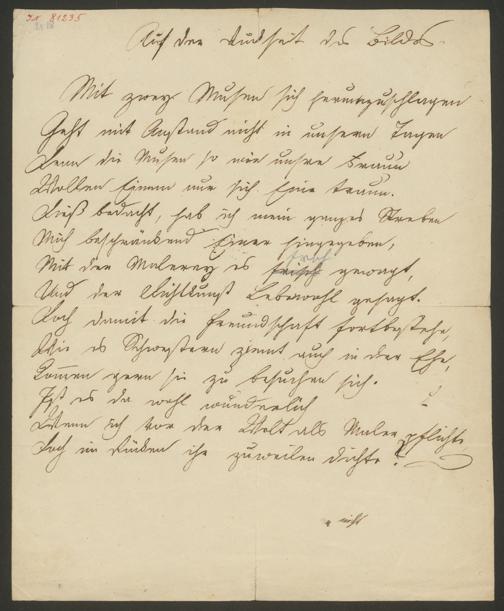 IN 81235
Auf der Rückseite des Bildes.
Mit zwey Musen sich herumzuschlagen
Geht mit Anstand nicht in unsern Tagen
Denn die Musen so wie unsre Fraun
Wollen Einem nur sich Eine traun.
Dieß bedacht, hab ich mein ganzes Streben
Mich beschränkend Einer hingegeben,
Mit der Malerey es frisch gewagt,
Und der Lebewohl gesagt.
Doch damit die Freundschaft fortbestehe,
Wie es Schwestern ziemt auch in der Ehe,
Kommen gern sie zu besuchen sich.
Ist es da wohl wunderlich
Wenn ich vor der Welt als Maler pflichte
Doch im Rücken ihr zuweilen dichte?
nicht